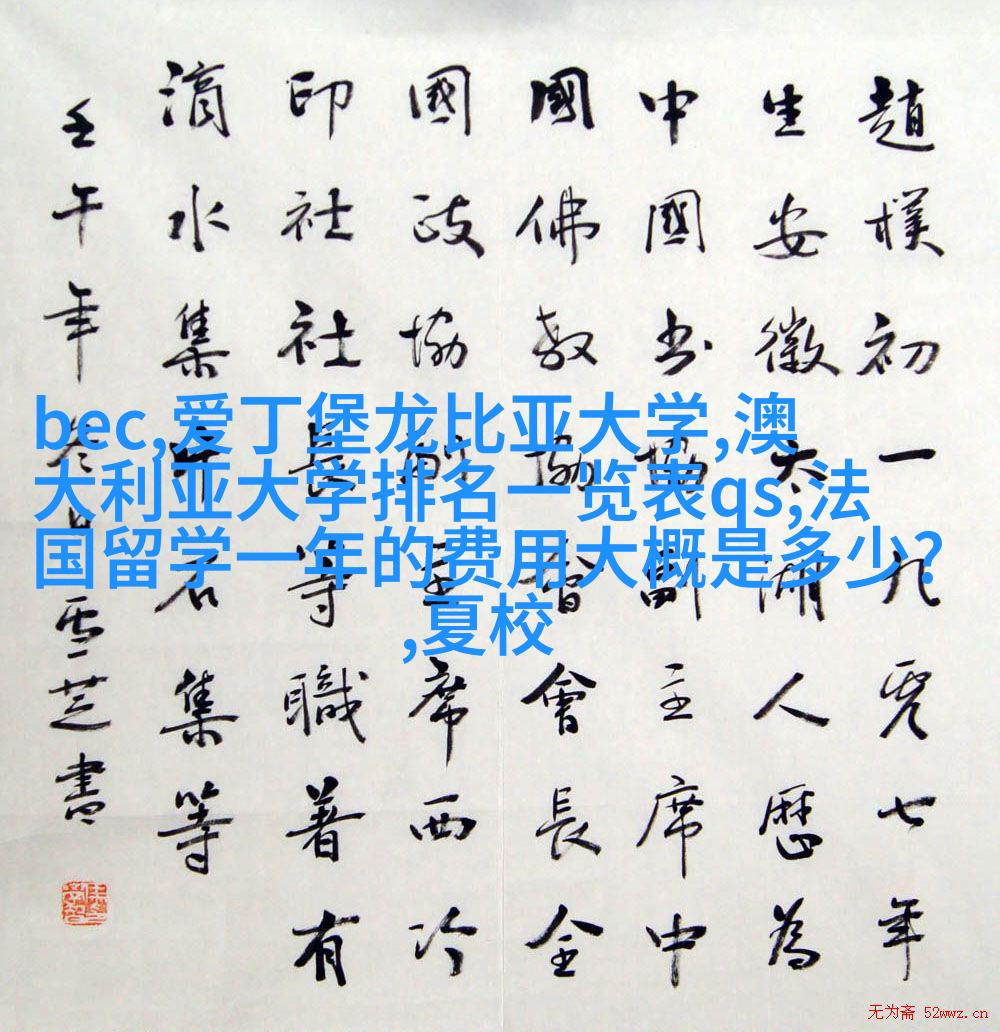 趙樸初一九零七年
生安徽太湖人歷為
中國书協副主席中
國佛教協會會長全
國政協副主席西冷
印社社長等職著有
滴水集片石集等
壬午年冬月雪芝書
bec,爱丁堡龙比亚大学,澳
大利亚大学排名一览表qs,法
国留学一年的费用大概是多少?
,夏校
无为斋 52wwz.cn